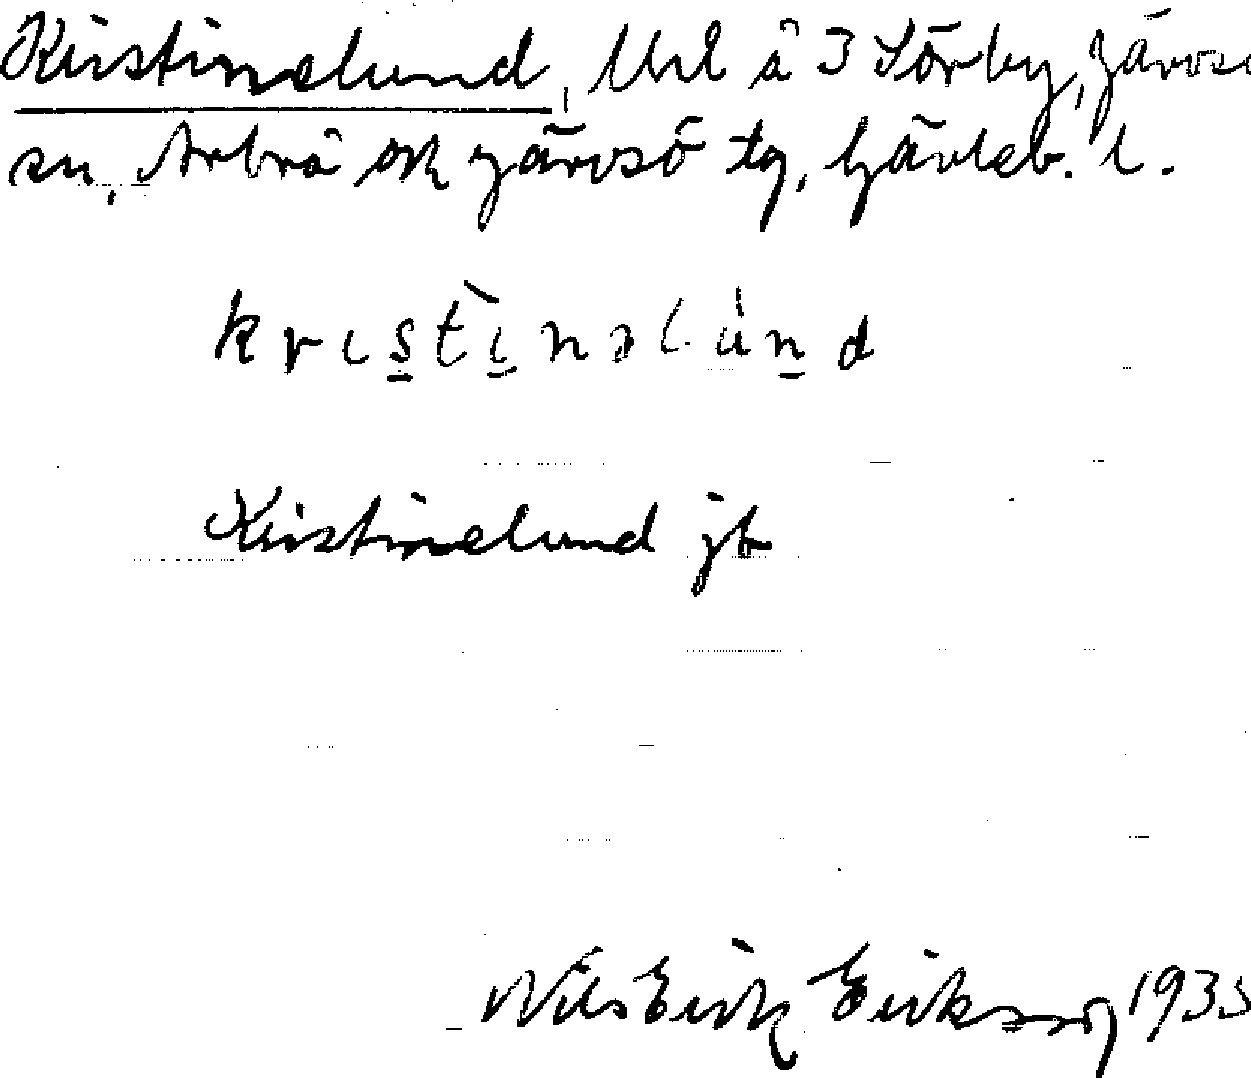 Kristinelund, Uhl å 3 Sörby, Järvsö
sn, Arbrå och Järvsö tg, Gävleb. l.
kristinəlund
Kristinelund jb
Nils Erik Eriksson 1935